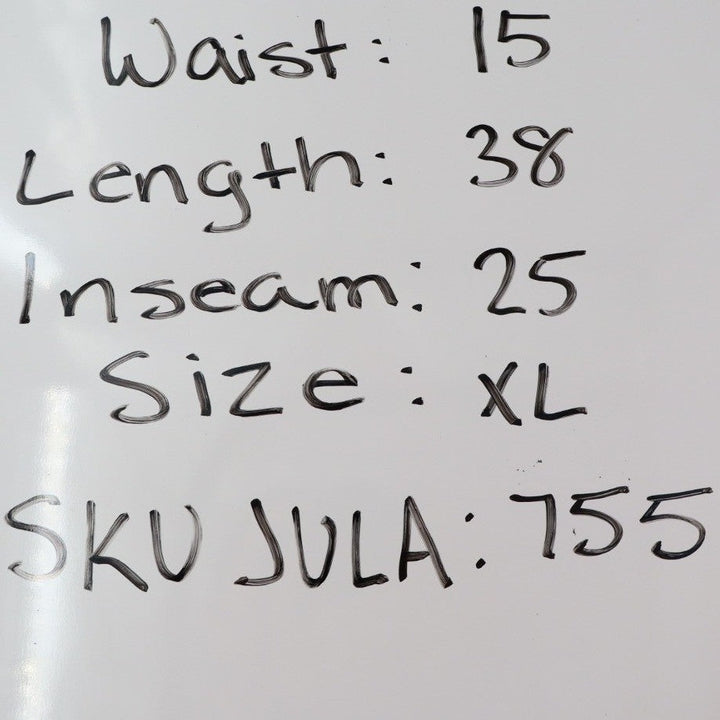 Waist: 15
Length: 38
Inseam: 25
Size: XL
SKU JULA: 755